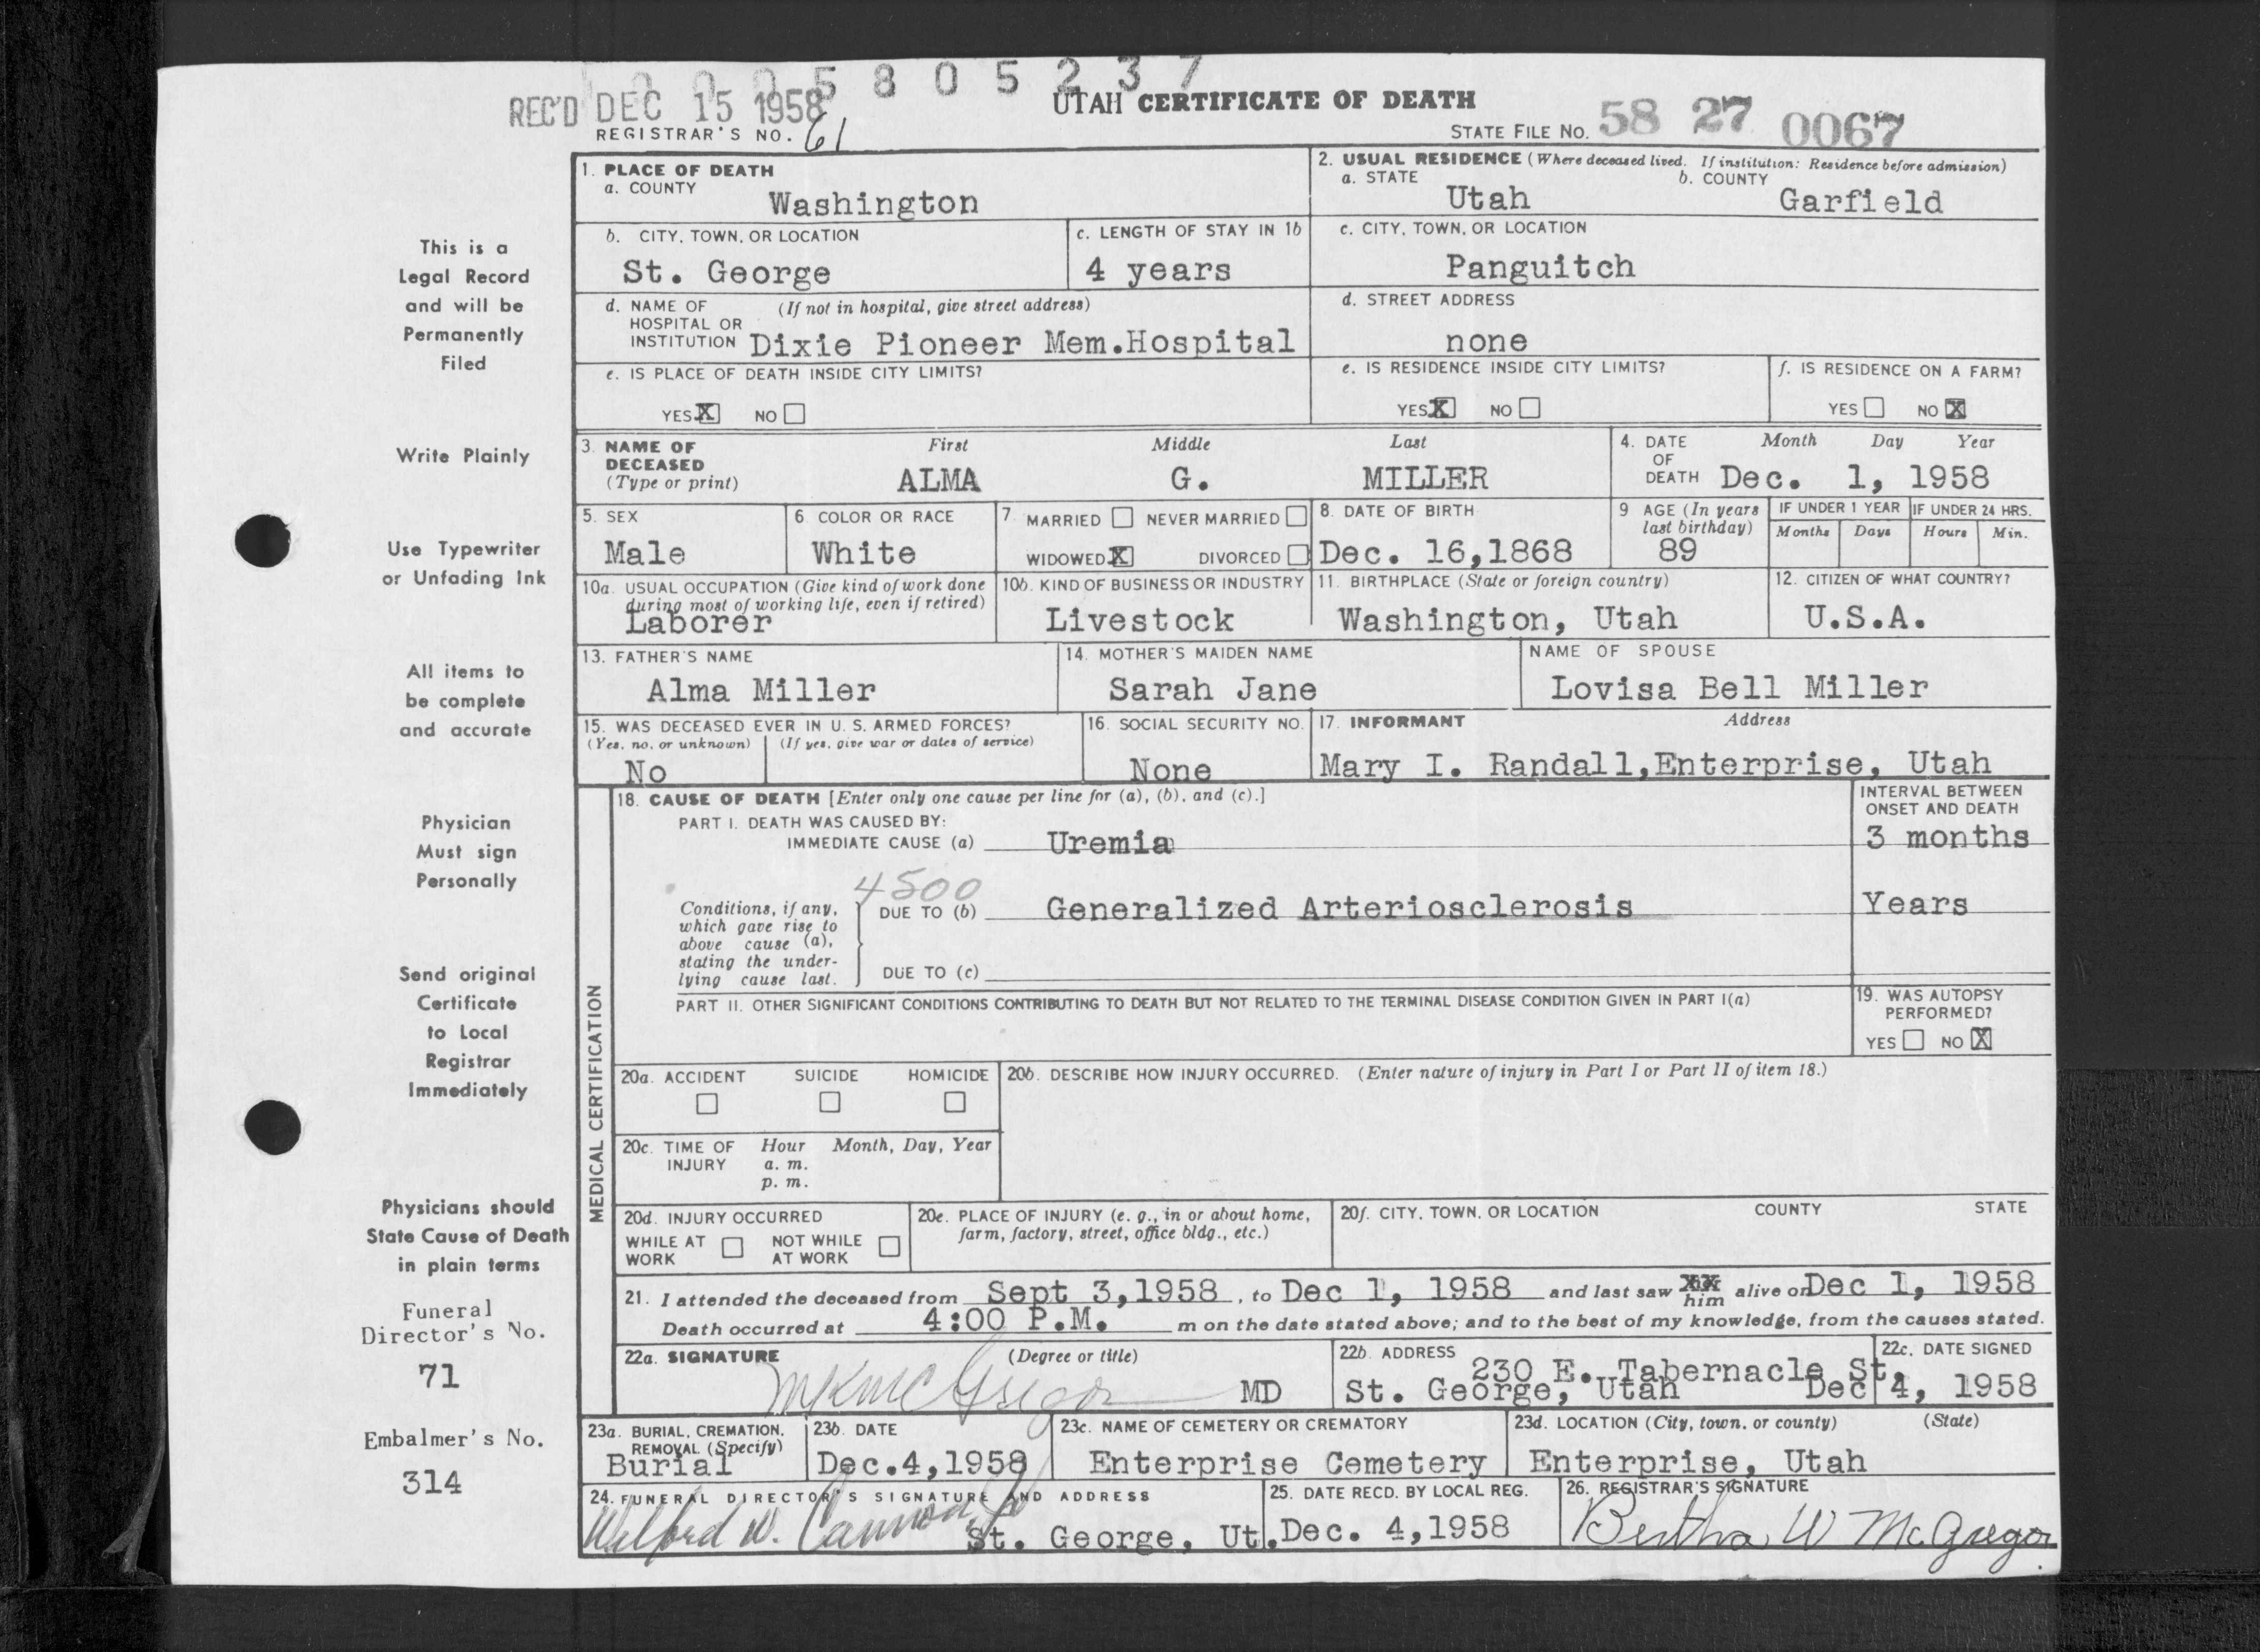 5 8 0 5 2 3 7
REC'D DEC 15 1958 UTAH CERTIFICATE OF DEATH
REGISTRAR'S NO. 61 STATE FILE NO. 58 27 0067
1. PLACE OF DEATH
a. COUNTY
Washington
2. USUAL RESIDENCE (Where deceased lived. If institution: Residence before admission)
a. STATE b. COUNTY
Utah Garfield
b. CITY, TOWN, OR LOCATION
St. George
c. LENGTH OF STAY IN 1b
4 years
c. CITY, TOWN, OR LOCATION
Panguitch
d. NAME OF (If not in hospital, give street address)
HOSPITAL OR
INSTITUTION Dixie Pioneer Mem.Hospital
d. STREET ADDRESS
none
e. IS PLACE OF DEATH INSIDE CITY LIMITS?
YES X NO
e. IS RESIDENCE INSIDE CITY LIMITS?
YES X NO
f. IS RESIDENCE ON A FARM?
YES NO X
3. NAME OF First Middle Last
DECEASED
(Type or print) ALMA G. MILLER
4. DATE Month Day Year
OF
DEATH Dec. 1, 1958
5. SEX
Male
6 COLOR OR RACE
White
7. MARRIED NEVER MARRIED
WIDOWED X DIVORCED
8. DATE OF BIRTH
Dec. 16,1868
9 AGE (In years
last birthday)
89
IF UNDER 1 YEAR IF UNDER 24 HRS.
Months Days Hours Min.
10a. USUAL OCCUPATION (Give kind of work done
during most of working life, even if retired)
Laborer
10b. KIND OF BUSINESS OR INDUSTRY
Livestock
11. BIRTHPLACE (State or foreign country)
Washington, Utah
12. CITIZEN OF WHAT COUNTRY?
U.S.A.
13. FATHER'S NAME
Alma Miller
14. MOTHER'S MAIDEN NAME
Sarah Jane
NAME OF SPOUSE
Lovisa Bell Miller
15. WAS DECEASED EVER IN U. S. ARMED FORCES?
(Yes, no, or unknown) (If yes, give war or dates of service)
No
16. SOCIAL SECURITY NO.
None
17. INFORMANT Address
Mary I. Randall,Enterprise, Utah
MEDICAL CERTIFICATION
18. CAUSE OF DEATH [Enter only one cause per line for (a), (b), and (c).]
PART I. DEATH WAS CAUSED BY:
IMMEDIATE CAUSE (a) Uremia
INTERVAL BETWEEN
ONSET AND DEATH
3 months
4500
Conditions, if any,
which gave rise to
above cause (a),
stating the under-
lying cause last.
DUE TO (b) Generalized Arteriosclerosis
Years
DUE TO (c)
PART II. OTHER SIGNIFICANT CONDITIONS CONTRIBUTING TO DEATH BUT NOT RELATED TO THE TERMINAL DISEASE CONDITION GIVEN IN PART I(a)
19. WAS AUTOPSY
PERFORMED?
YES NO X
20a. ACCIDENT SUICIDE HOMICIDE
20b. DESCRIBE HOW INJURY OCCURRED. (Enter nature of injury in Part I or Part II of item 18.)
20c. TIME OF Hour Month, Day, Year
INJURY a. m.
p. m.
20d. INJURY OCCURRED
WHILE AT NOT WHILE
WORK AT WORK
20e. PLACE OF INJURY (e. g., in or about home,
farm, factory, street, office bldg., etc.)
20f. CITY, TOWN, OR LOCATION COUNTY STATE
21. I attended the deceased from Sept 3,1958, to Dec 1, 1958 and last saw XX him alive on Dec 1, 1958
Death occurred at 4:00 P.M. m on the date stated above; and to the best of my knowledge, from the causes stated.
22a. SIGNATURE (Degree or title)
MKMcGregor MD
22b. ADDRESS
230 E. Tabernacle St.
St. George, Utah
22c. DATE SIGNED
Dec 4, 1958
23a. BURIAL, CREMATION,
REMOVAL (Specify)
Burial
23b. DATE
Dec.4,1958
23c. NAME OF CEMETERY OR CREMATORY
Enterprise Cemetery
23d. LOCATION (City, town, or county) (State)
Enterprise, Utah
24. FUNERAL DIRECTOR'S SIGNATURE AND ADDRESS
Wilford W. Cannon Jr
St. George, Ut.
25. DATE RECD. BY LOCAL REG.
Dec. 4,1958
26. REGISTRAR'S SIGNATURE
Bertha W McGregor
This is a
Legal Record
and will be
Permanently
Filed
Write Plainly
Use Typewriter
or Unfading Ink
All items to
be complete
and accurate
Physician
Must sign
Personally
Send original
Certificate
to Local
Registrar
Immediately
Physicians should
State Cause of Death
in plain terms
Funeral
Director's No.
71
Embalmer's No.
314